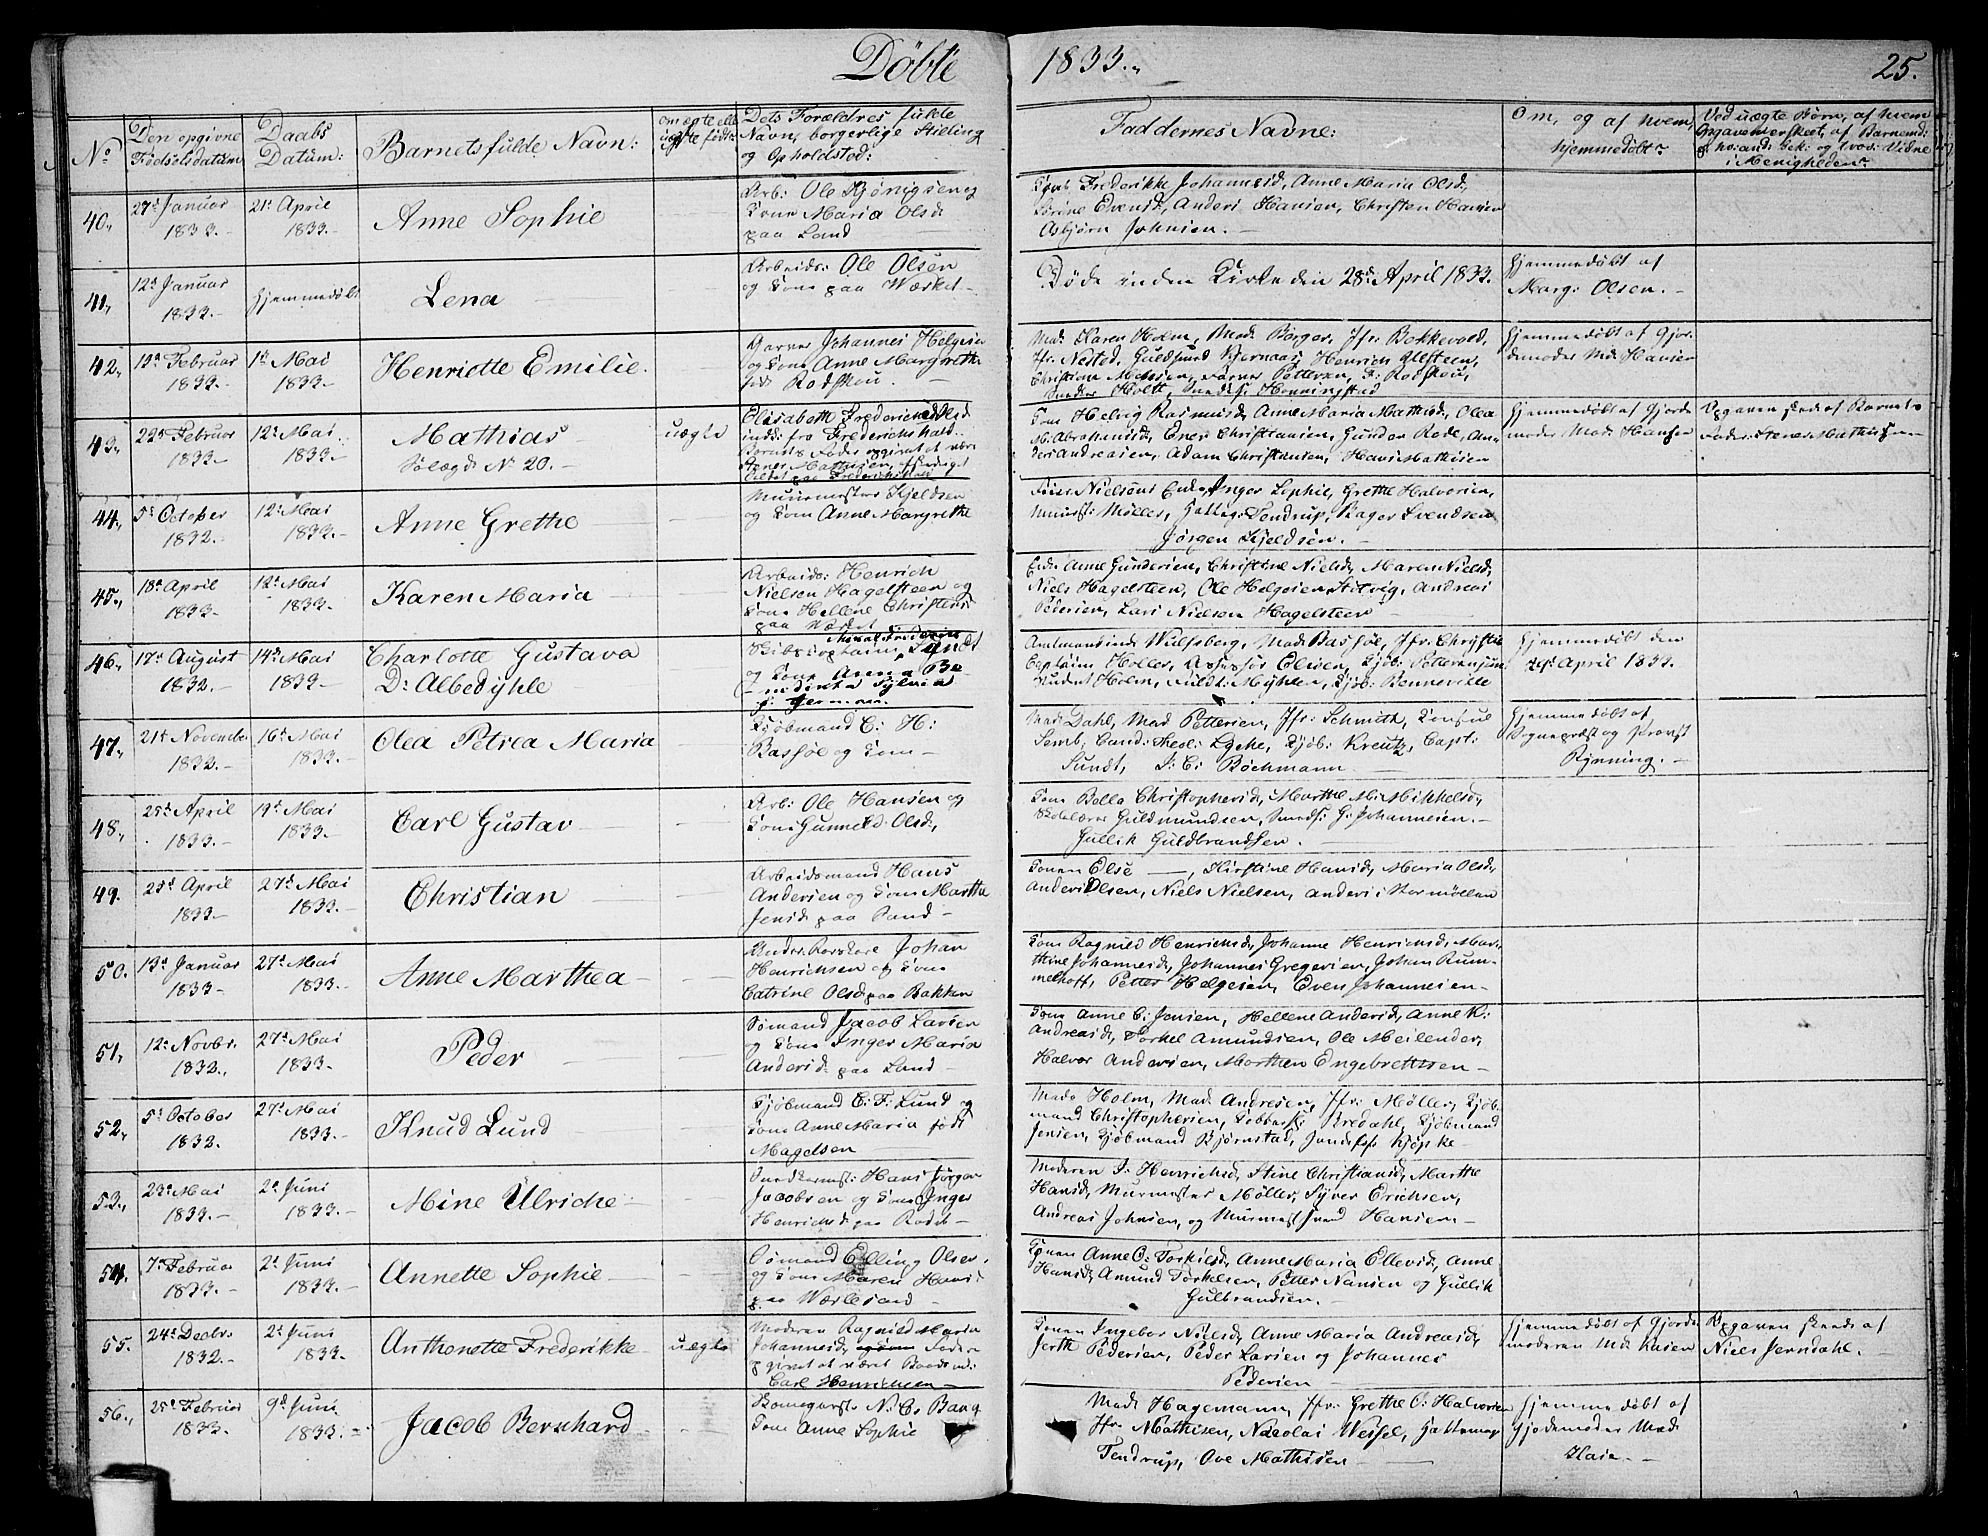 Döbte 1833. 25.
No
Den opgivne
Födselsdatum
Daabs
Datum:
Barnets fulde Navn:
om ægte elle
uægte födt:
Dets Forældres fulde
Navn, borgerlige Stieling
og Opholdsted:
Faddernes Navne:
Om, og af hvem,
hjemmedöbt
Ved uægte Börn, af hvem
i Menigheden
40,
27d Januar
1833.-
21d April
1833.-
Anne Sophie
Arb: Ole
Kone Maria Olsd
paa Land
Frederikke Johannesd, Anne Maria Olsd,
Sörine Evensd, Anders Hansen, Christen Hansen
Asbjörn Johnsen.
41,
12d Januar
1833.-
hjemmedöbt
Lena
Arbeids: Ole Olsen
og Kone paa Værket
Döde inden Kirke den 28d April 1833.
hjemmedöbt af
Marg: Olsen.
42,
Februar
1833.
1d Mai
1833.
Henriette Emilie.
Garver Johannes Helgesen
og Kone Anne Margrethe
födt Rodskou.
Mad: Karen Holm, Mad: Borger, Jfr: Bekkevold,
Jfr: Nested, Guldsmed Henrich
Petersen, F: Rodskou,
hjemmedöbt af Gjor
demoder Md: Hansen
43,
22d Februar
1833.
12d Mai
1833.
Mathias
No 20.
uægte
Elisabeth Frederichsd
fra Frederichshald.
Barnets Fader opgivet at være
Stener Mathisen,
Kone Helvig Rasmusd, Anne Maria Mathisd, Olea
M: Abrahamsd, Ener Christiansen, Gunder Rode, An-
ders Andreasen, Adam Christiansen, Hans Mathisen
hjemmedöbt af Gjorde
moder Mad: Hansen
Opgaven skede af Barnets
Fader Stener Mathisen
44,
5d October
1832.
12d Mai
1833.
Anne Grethe
Muurmester Kjeldsen
og Kone Anne Margrethe
Nielsens Enke, Inger Sophie, Grethe Halvorsen,
Muurm: Möller, Tendrup, Svendsen
Jörgen Kjeldsen.
45,
18d April
1833
12d Mai
1833
Karen Maria
Arbeids: Henrich
Nielsen Hagelsteen og
Kone Hellene Christensd
paa Værket
Enke Anne Gundersen, Christine Nielsd, Maren Nielsd,
Niels Hagelsteen, Ole Helgesen Andreas
Pedersen, Lars Nielsen Hagelsteen
46,
17d August
1832.
14d Mai
1833
Charlotte Gustava
D: Albedyhle
Skibscaptain, Sundt
og Kone Anna Be
nedicta Sylvia
Amtmandinde Wulfsberg, Mad: Basöe, Jfr: Christie
Captain Holler, Assessor Elisen, Kjöb: Pettersen
Student Holm, Myhlen, Kjöb: Benneville
hjemmedöbt den
April 1833.
47,
21d November
1832.
16d Mai
1833.
Olea Petrea Maria
Kjöbmand C: H:
Basöe og Kone
Mad Dahl, Mad Pettersen, Jfr: Schmith, Consul
Semb, Cand: Theol: Lyche, Kjöb: Kreutz, Capt:
Sundt, J: C: Böchmann
hjemmedöbt af
Sognepræst og Provst
Rynning.
48,
25d April
1833.
19d Mai
1833.
Carl Gustav
Arb: Ole Hansen og
Kone Gunneld Olsd,
Kone Bella Christophersd, Marthe M: Mikkelsd,
Skolelærer Guldmundsen, Smeds: G: Johannesen.
Gullik Guldbrandsen.
49.
25d April
1833.
27d Mai
1833.
Christian
Arbeidsmand Hans
Andersen og Kone Marthe
Jensd paa Land
Konen Else, Kirstine Hansd, Maria Olsd,
Anders Olsen, Niels Nielsen, Anders i Stormöllen
50.
13d Januar
1833
27d Mai
1833.
Anne Marthea
Johan
Henrichsen og Kone
Catrine Olsd paa Bakken
Kone Ragnild Henrichsd, Johanne Henrichsd, Mar
thine Johannesd, Johannes Gregersen, Johan Rum
melhoff, Petter Helgesen, Even Johannesen
51,
12d Novbr.
1832,
27d Mai
1833.
Peder
Sömand Jacob Larsen
og Kone Inger Maria
Andersd: paa Land
Kone Anne C: Jensen, Hellene Andersd, Anne K:
Andreasd, Torkel Amundsen, Ole Meilender,
Halvor Andersen, Morthen Engebrethsen
52,
5d October
1832.
27d Mai
1833.
Knud Lund
Kjöbmand C: F: Lund og
Kone Anne Maria födt
Magelsen
Mad: Holm, Mad: Andresen, Jfr: Möller, Kjöb
mand Christophersen, Bredahl, Kjöbmand
Jensen, Kjöbmand Björnstad,
53,
23d Mai
1833.
2d Juni
1833.
Mine Ulriche
Snedkermest: Hans Jörgen
Jacobsen og Kone Inger
Henrichsd: paa Rödet
Moderen I: Henrichsd, Stine Christiansd, Marthe
Hansd, Murmester Möller, Syver Erichsen,
Andreas Johnsen, og Murmest: Svend Hansen
54,
7d Februar
1833.
2d Juni
1833.
Annette Sophie
Sömand Elling Olsen,
og Kone Maren Hansd
paa Værlesand
Konen Anne C: Torkilsd, Anne Maria Ellevsd, Anne
Hansd, Amund Torkelsen, Petter Nansen og Gullik
Gulbrandsen.
55.
24d Decbr.
1832.
2d Juni
1833.
Anthonette Frederikke
uægte
Moderen Ragnild Maria
Johannesd, Fader
opgivet at været
Carl Henrichsen
Konen Ingebor Nielsd, Anne Maria Andreasd,
Pedersen, Peder Larsen og Johannes
Pedersen
hjemmedöbt af Gjorde
moderen Md: Hasen
Opgaven skede af
Niels Jerndahl.
56,
25d Februar
1833.
9d Juni
1833.
Jacob Bernhard
N: C: Bang
Kone Anne Sophie
Mad: Hagemann, Jfr: Grethe C: Halvorsen
Jfr: Mathisen, Nicolai Wessel,
Tendrup, Ove Mathisen
hjemmedöbt af
Gjordemoder Mad:
Hasen.